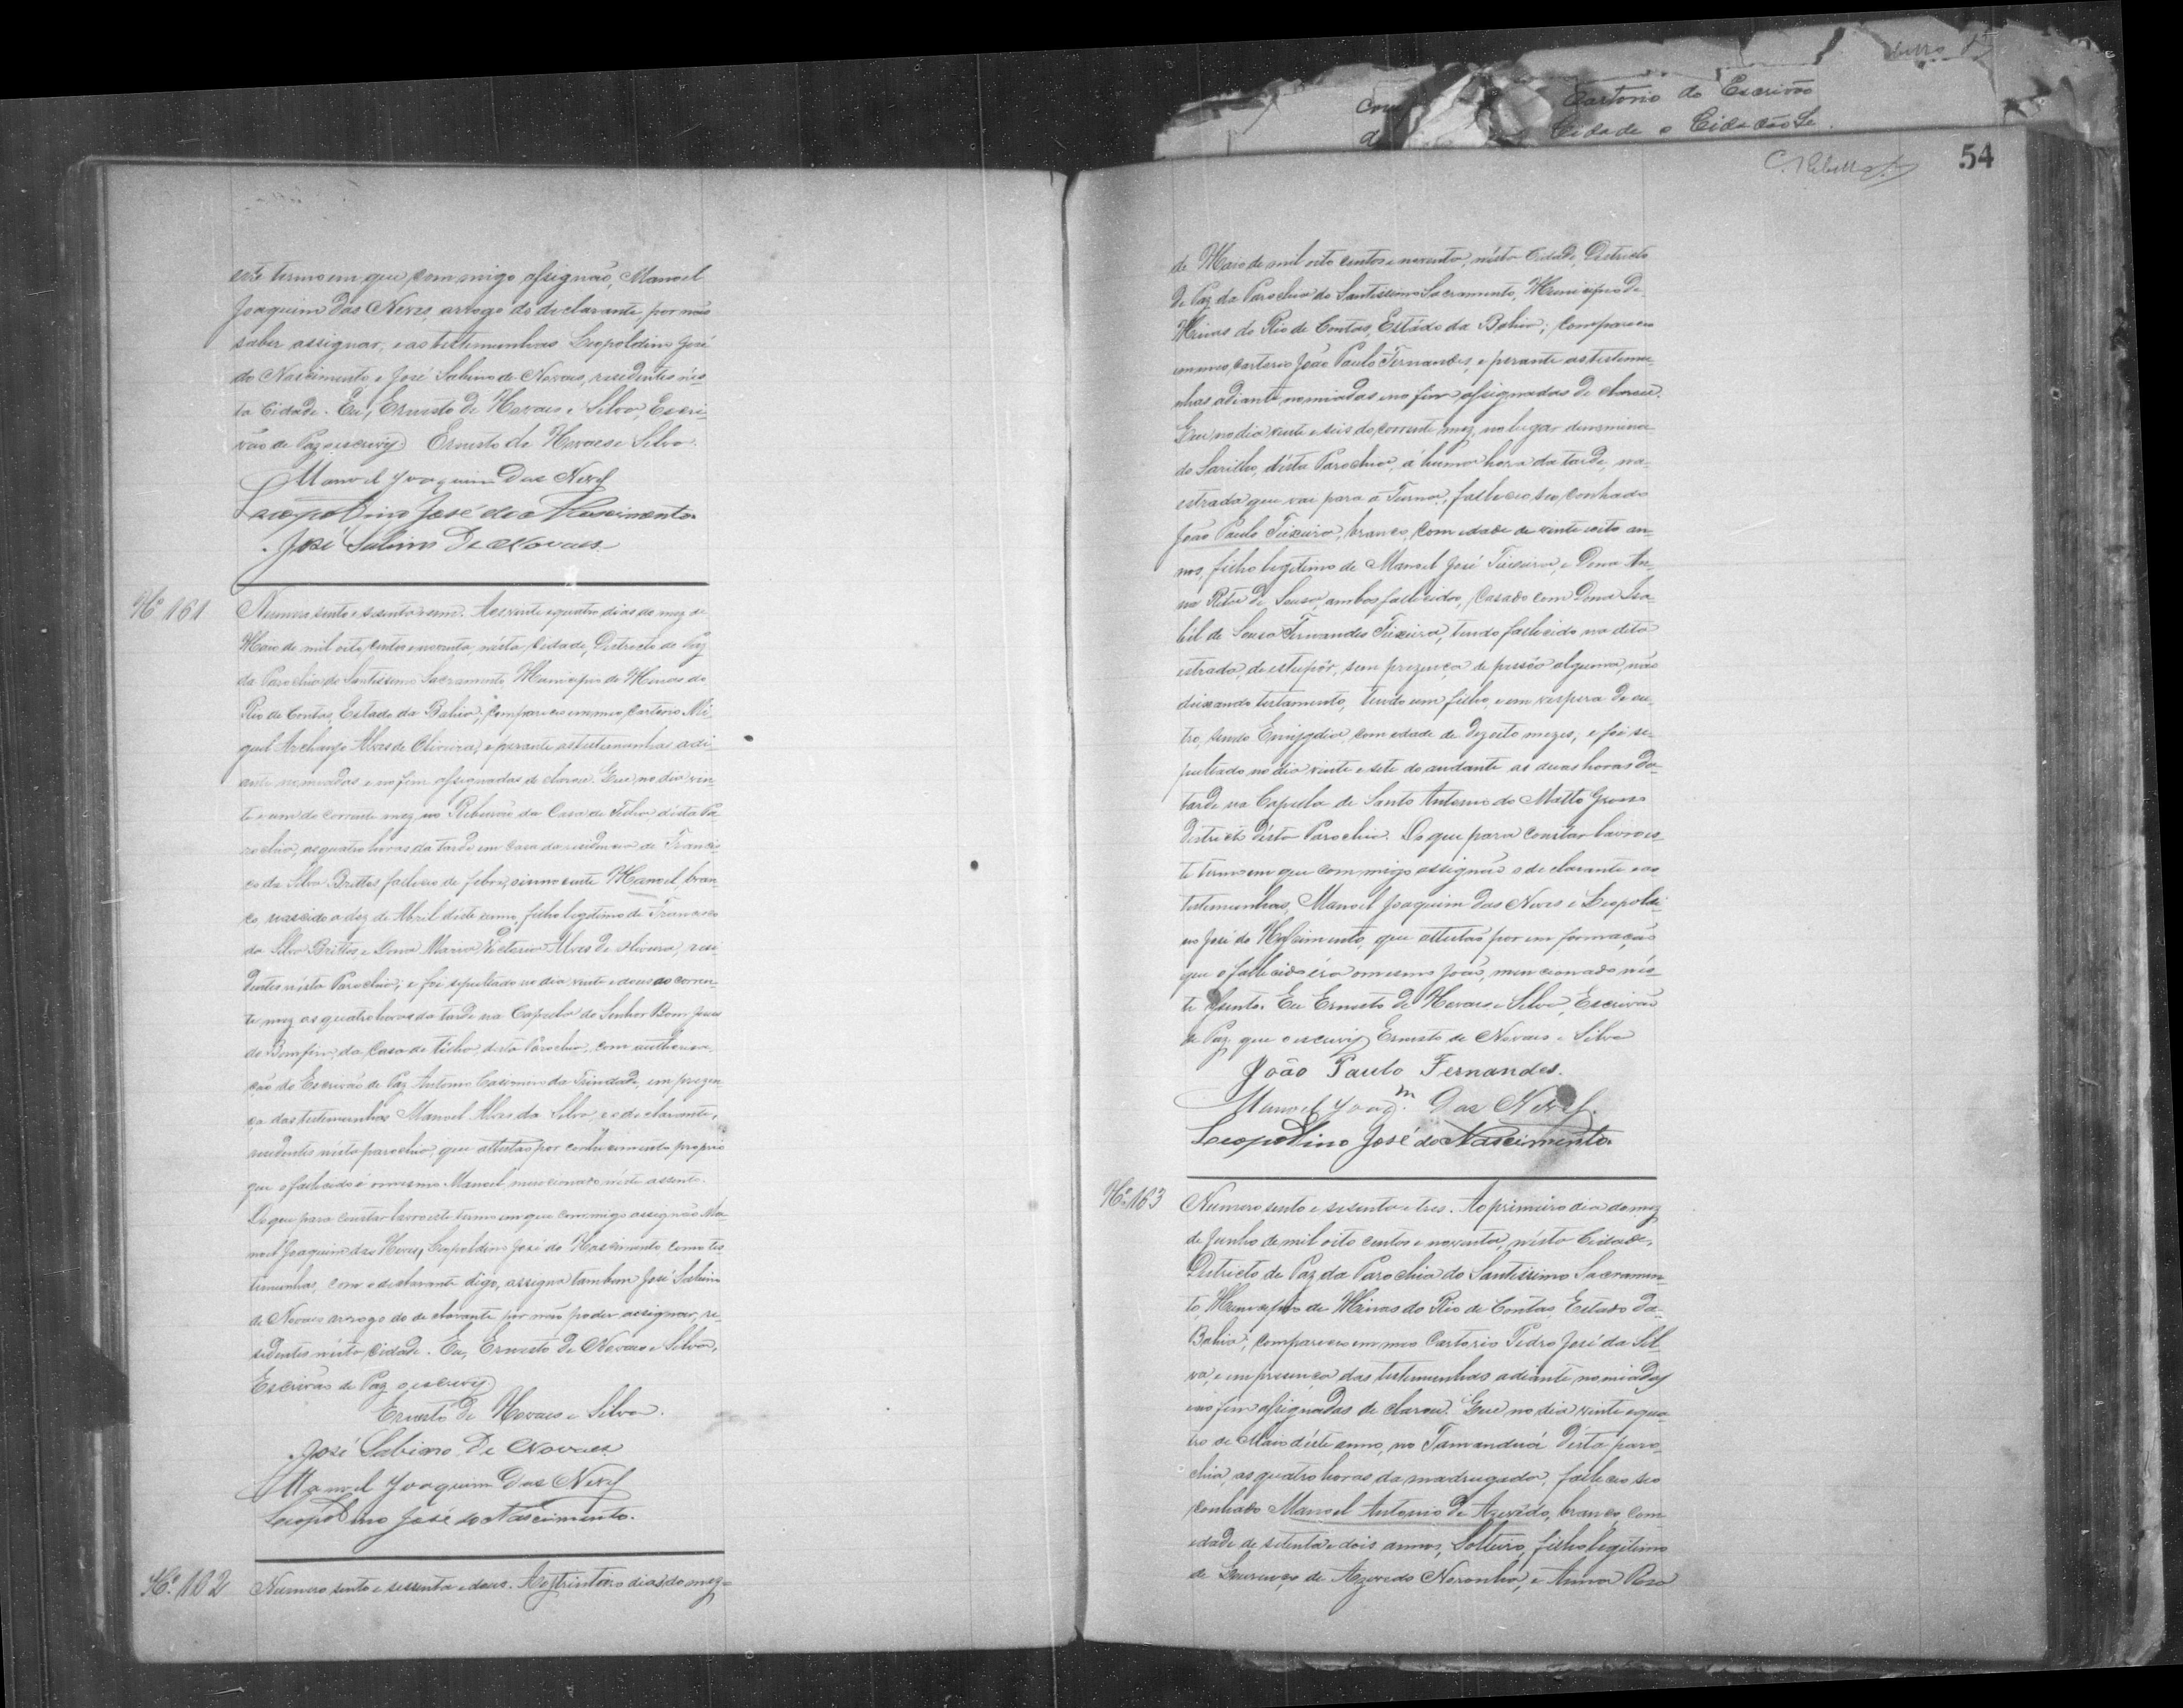 este termo em que com migo assignão, Manoel
Joaquim das Neves, arrogo do declarante, por não
saber assignar, e as testemunhas Leopoldino José
do Nascimento, e José Sabino de Novaes, residentes nés-
ta Cidade. Eu, Ernesto de Novaes e Silva, Escri-
vão de Paz o escrevy. Ernesto de Novaes e Silva.
Manoel Joaquim das Neves
Leopoldino José do Nascimento
José Sabino de Novaes
Nº 161
Numero sento e sesenta e um. Aos vinte e quatro dias do mez de
Maio de mil oito centos e noventa, nésta Cidade, Districto de Paz
da Parochia do Santissimo Sacramento, Municipio de Minas do
Rio de Contas, Estado da Bahia; compareceu em meu Cartorio Mi-
guel Archanjo Alves de Oliveira, e perante as testemunhas adi-
ante nomiadas e no fim assignadas declarou. Que no dia vin-
te e um do corrente mez no Riberão da Casa de Telha désta Pa-
rochia, as quatro horas da tarde em casa da residencia de Francis-
co da Silva Brittos, falleceu de febre, o innocente Manoel, bran-
co, nascido a dez de Abril déste anno, filho legitimo de Francisco
da Silva Brittos e Dona Maria Victoria Alves de Oliveira, resi-
dentes nésta Parochia; e foi sepultado no dia vinte e dous do corren-
te mez as quatro horas da tarde na Capella do Senhor Bom Jesus
do Bomfim, da Casa de Telha, désta Parochia, com authorisa-
ção do Escrivão de Paz Antonio Casimiro da Trindade, em prezen-
ça das testemunhas Manoel Alves da Silva, e o declarante,
residentes nésta parochia, que attestão por conhecimento proprio
que o fallecido é o mesmo Manoel mencionado néste assento.
Do que para constar lavro este termo em que com migo assignão Ma-
noel Joaquim das Neves, Leopoldino José do Nascimento como tes-
temunhas, com o declarante digo, assigna tambem José Sabino
de Novaes arrogo do declarante por não poder assignar, re-
sidentes nésta Cidade. Eu, Ernesto de Novaes e Silva,
Escrivão de Paz o escrevy
Ernesto de Novaes e Silva.
José Sabino de Novaes
Manoel Joaquim das Neves
Leopoldino José do Nascimento.
Nº 162
Numero sento e sessenta e dous. Aos trinta dias do mez
Cartorio do Escrivão
Cidade o Cidadão
54
de Maio de mil oito centos e noventa, nésta Cidade, Districto
de Paz da Parochia do Santissimo Sacramento, Municipio de
Minas do Rio de Contas, Estado da Bahia; compareceu
em meu Cartorio João Paulo Fernandes, e perante as testemu-
nhas adiante nomiadas e no fim assignadas declarou.
Que no dia vinte e seis do corrente mez, no lugar denomina-
do Sarilho, désta Parochia, á huma hora da tarde, na
estrada que vai para a Furna, falleceu seu cunhado
João Paulo Teixeira, branco, com edade de vinte e oito an-
nos, filho legitimo de Manoel José Teixeira, e Dona An-
na Rita de Sousa, ambos fallecidos, Casado com Dona Isa-
bél de Sousa Fernandes Teixeira, tendo fallecido na dita
estrada, de estupôr, sem prezença de pessôa alguma, não
deixando testamento, tendo um filho, e em vespera de ou-
tro, sendo com edade de dezoito mezes, e foi se-
pultado no dia vinte e sete do andante as duas horas da
tarde na Capella de Santo Antonio do Matto Grosso
districto désta Parochia. Do que para constar lavro es-
te termo em que com migo assignão o declarante e as
testemunhas, Manoel Joaquim das Neves e Leopoldi-
no José do Nascimento, que attestão por em formação
que o fallecido éra o mesmo João, mencionado nés-
te assento. Eu Ernesto de Novaes e Silva, Escrivão
de Paz que o escrevy Ernesto de Novaes e Silva
João Paulo Fernandes.
Manoel Joaq.m das Neves.
Leopoldino José do Nascimento
Nº 163
Numero sento e sesenta e tres. Ao primeiro dia do mez
de Junho de mil oito centos e noventa, nésta Cidade,
Districto de Paz da Parochia do Santissimo Sacramen-
to, Municipio de Minas do Rio de Contas, Estado da
Bahia, compareceu em meu Cartorio Pedro José da Sil-
va, e em presença das testemunhas adiante nomiadas
e no fim assignadas declarou. Que no dia vinte e qua-
tro de Maio déste anno, no Tamanduá désta paro-
chia, as quatro horas da madrugada, falleceu seu
cunhado Manoel Antonio de Azevêdo, branco, com
edade de setenta e dois annos, Solteiro, filho legitimo
de Lourenço de Azevedo Noronha, e Anna Rosa